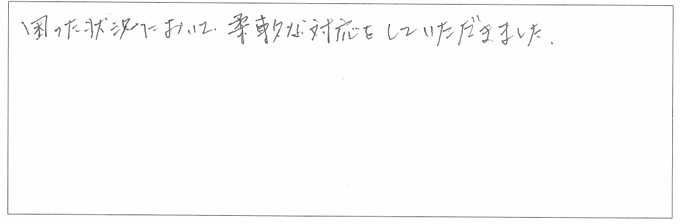 困った状況において、柔軟な対応をしていただきました。